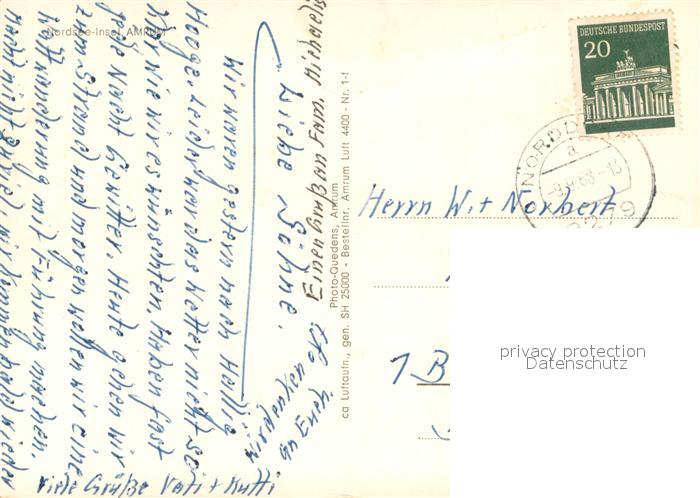 Nordsee-Insel, AMRUM
Liebe Söhne.
Wir waren gestern nach Hallig
Hooge. Leider war das Wetter nicht so
wie wir es wünschten. Haben fast
jede Nacht Gewitter. Heute gehen wir
zum Strand und morgen wollen wir eine
Wattwanderung mit Führung machen.
nicht wir kommen bald wieder
Viele Grüße Vati + Mutti
Einen Gruß an Fam. Michaelis
Photo-Quedens, Amrum
ca Luftaufn., gen. SH 25000 - Bestellnr. Amrum Luft 4400 - Nr. 1-f
DEUTSCHE BUNDESPOST
20
NORDD
a
-9.9.68-13
2279
Herrn W. + Norbert
1 B
privacy protection
Datenschutz